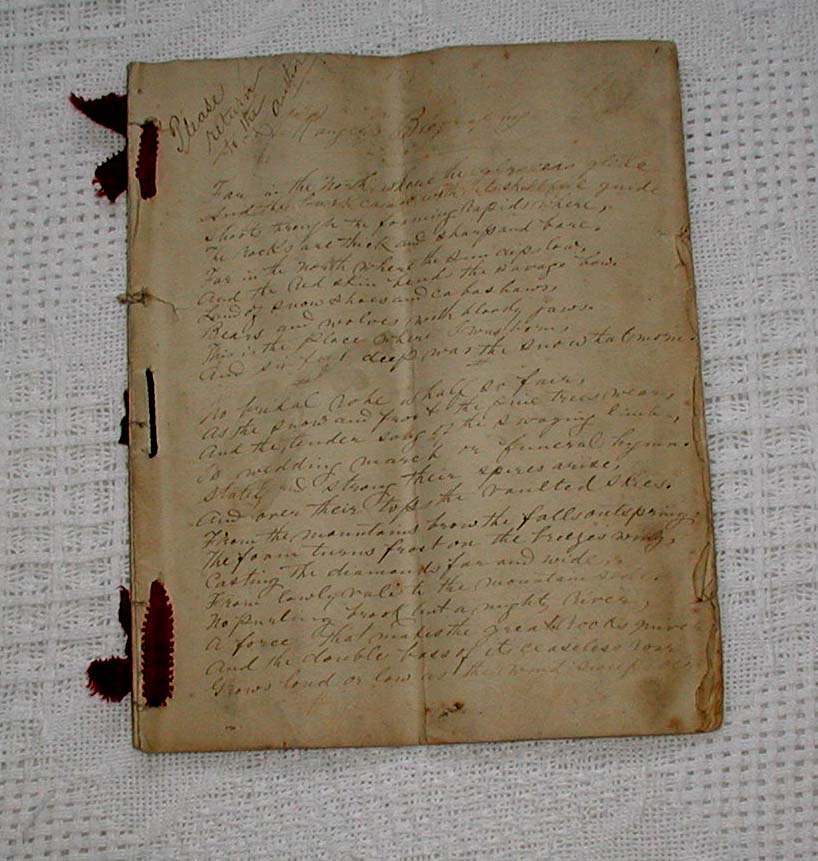 Please
return
to the
author
Far in the North where the glide
And the canoe with its skillful guide
Shoots through the foaming Rapids where,
The rocks are thick and sharp and bare.
Far in the North where the sun dips low,
And the Red skin bend the savage bow.
Land of snow shoes and
Bears and wolves with bloody jaws.
This is the place where I was born,
And six feet deep was the snow that morn.
No bridal robe is half so fair,
As the snow and frost the pine trees wear,
And the tender song of the swaying limbs,
Is wedding march or funeral hymn.
Stately and strong their spires arise,
And over their tops the vaulted skies.
From the mountains brow the falls outspring,
The foam turns frost on the breezes wing,
Casting the diamonds far and wide,
From lowly vale to the mountain side.
No purling brook but a mighty River,
A force that makes the great rocks quiver
And the double bass of its ceaseless roar
Grows loud or low as the wind sweep